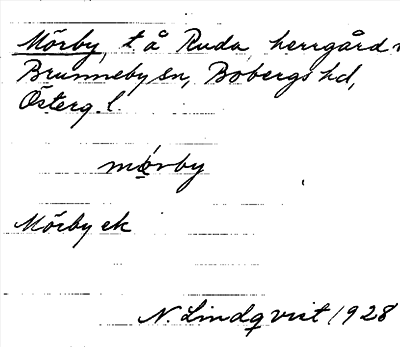 Mörby, t å Ruda herrgård
Brunneby sn, Bobergs hd,
Österg. l.
mörby
Mörby ek
N. Lindqvist 1928